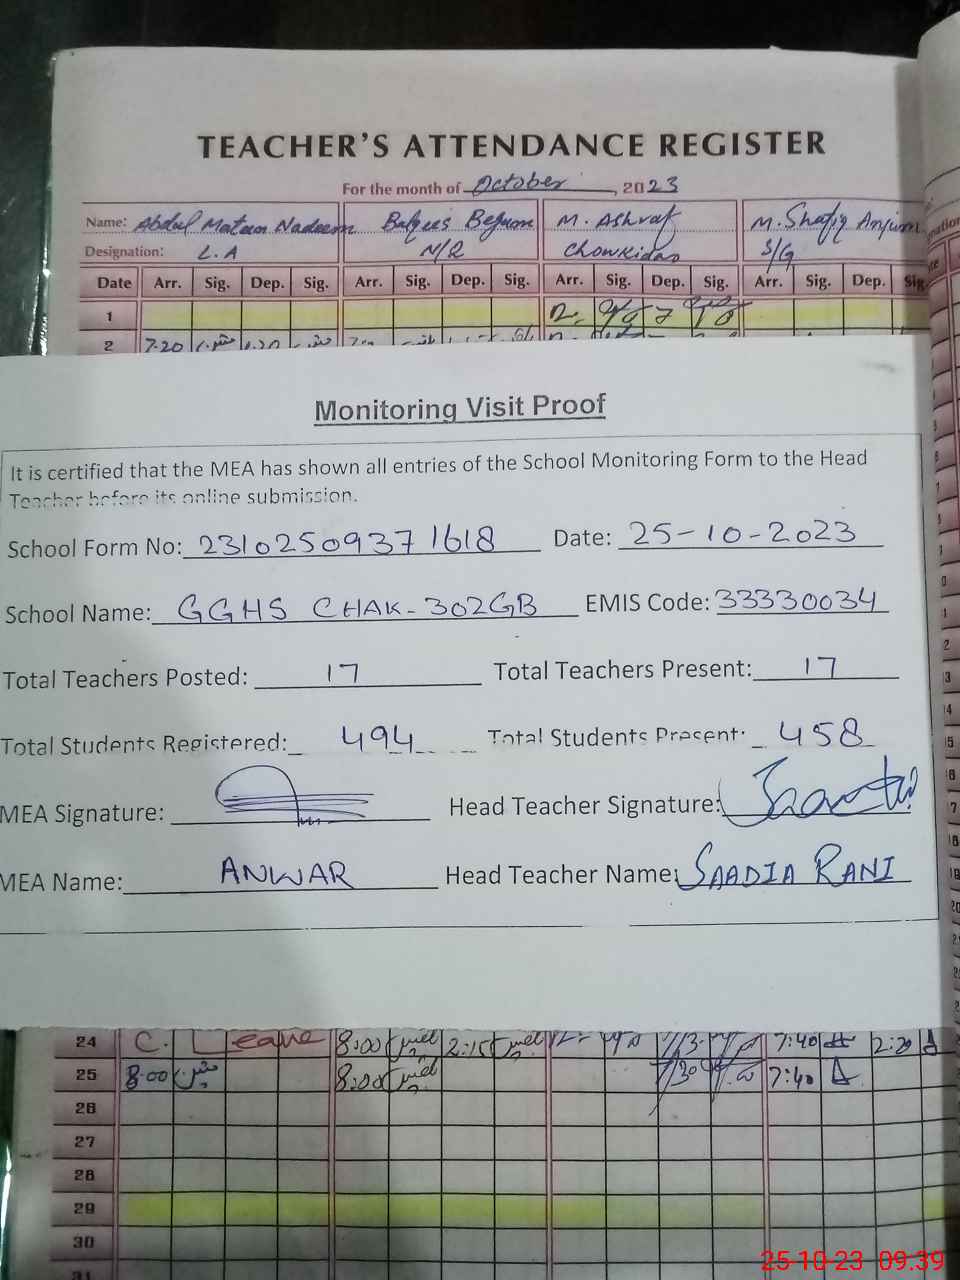 TEACHER'S ATTENDANCE REGISTER
For the month of October, 2023
Name: Abdul Mateen Nadeem Balqees Begum M. Ashraf M. Shafiq Anjum
Designation: L.A N/Q Chowkidar S/G
Date Arr. Sig. Dep. Sig. Arr. Sig. Dep. Sig. Arr. Sig. Dep. Sig. Arr. Sig. Dep. Sig
1
2 7.20
Monitoring Visit Proof
It is certified that the MEA has shown all entries of the School Monitoring Form to the Head
Teacher before its online submission.
School Form No: 23102509371618 Date: 25-10-2023
School Name: GGHS CHAK-302GB EMIS Code: 33330034
Total Teachers Posted: 17 Total Teachers Present: 17
Total Students Registered: 494 Total Students Present: 458
MEA Signature: Head Teacher Signature:
MEA Name: ANWAR Head Teacher Name: SAADIA RANI
24 C. Leave 8:00 2:15 7:40 2:20
25 8:00 8:00 7:40
26
27
28
29
30
31
25-10-23 09:39